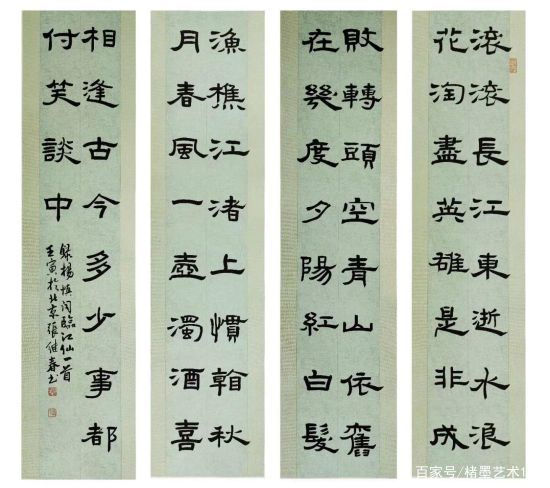 滚滚長江東逝水浪
花淘盡英雄是非成
敗轉頭空青山依舊
在幾度夕陽紅白髮
漁樵江渚上慣翰秋
月春風一壺濁酒喜
相逢古今多少事都
付笑談中
録楊慎词臨江仙一首
壬寅於北京張继春书
百家号/楮墨艺术1